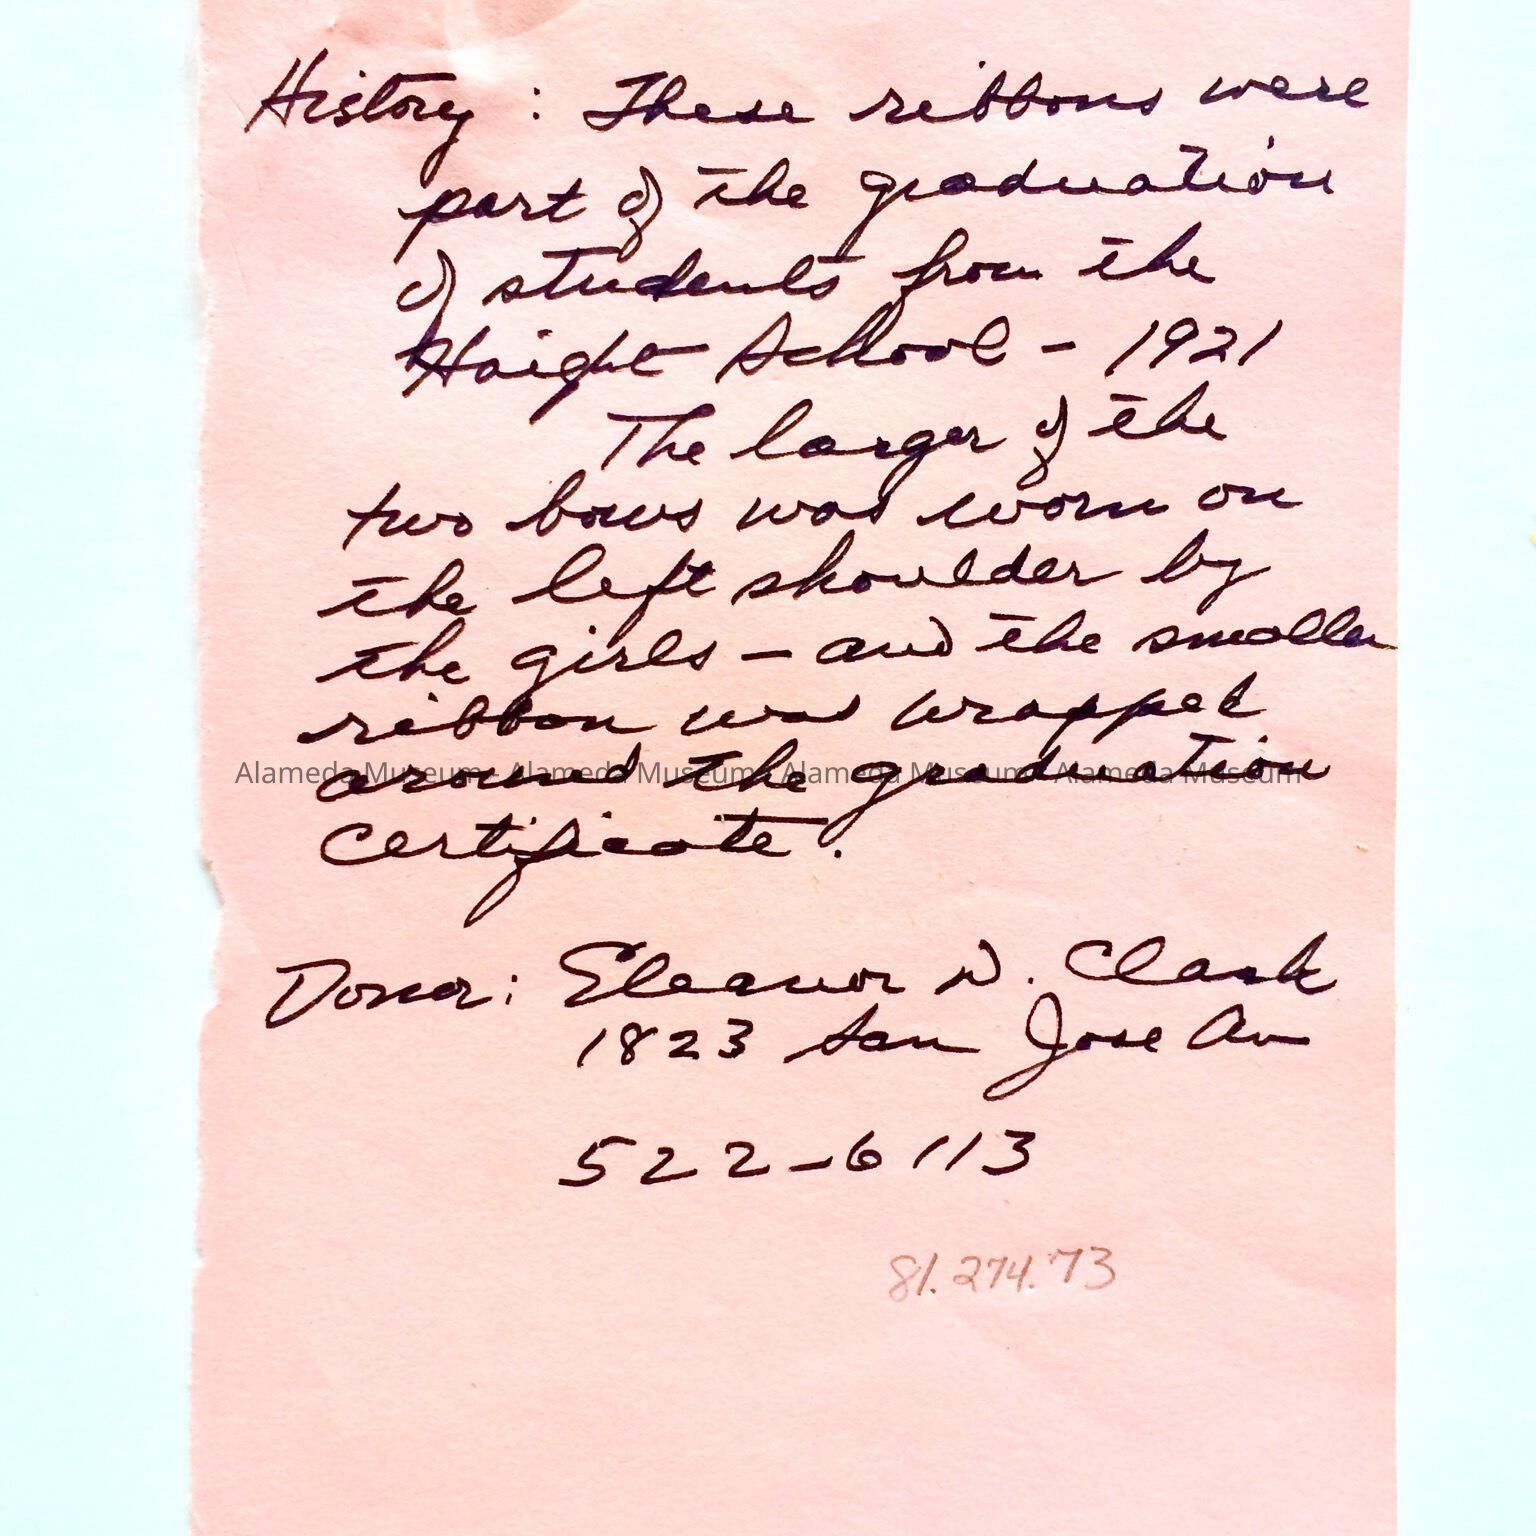 History : These ribbons were
part of the graduation
of students from the
Haight School - 1921
The larger of the
two bows was worn on
the left shoulder by
the girls - and the smaller
ribbon was wrapped
around the graduation
certificate.
Alameda Museum - Alameda Museum - Alameda Museum - Alameda Museum
Donor: Eleanor D. Clark
1823 San Jose Av
522-6113
81.274.73